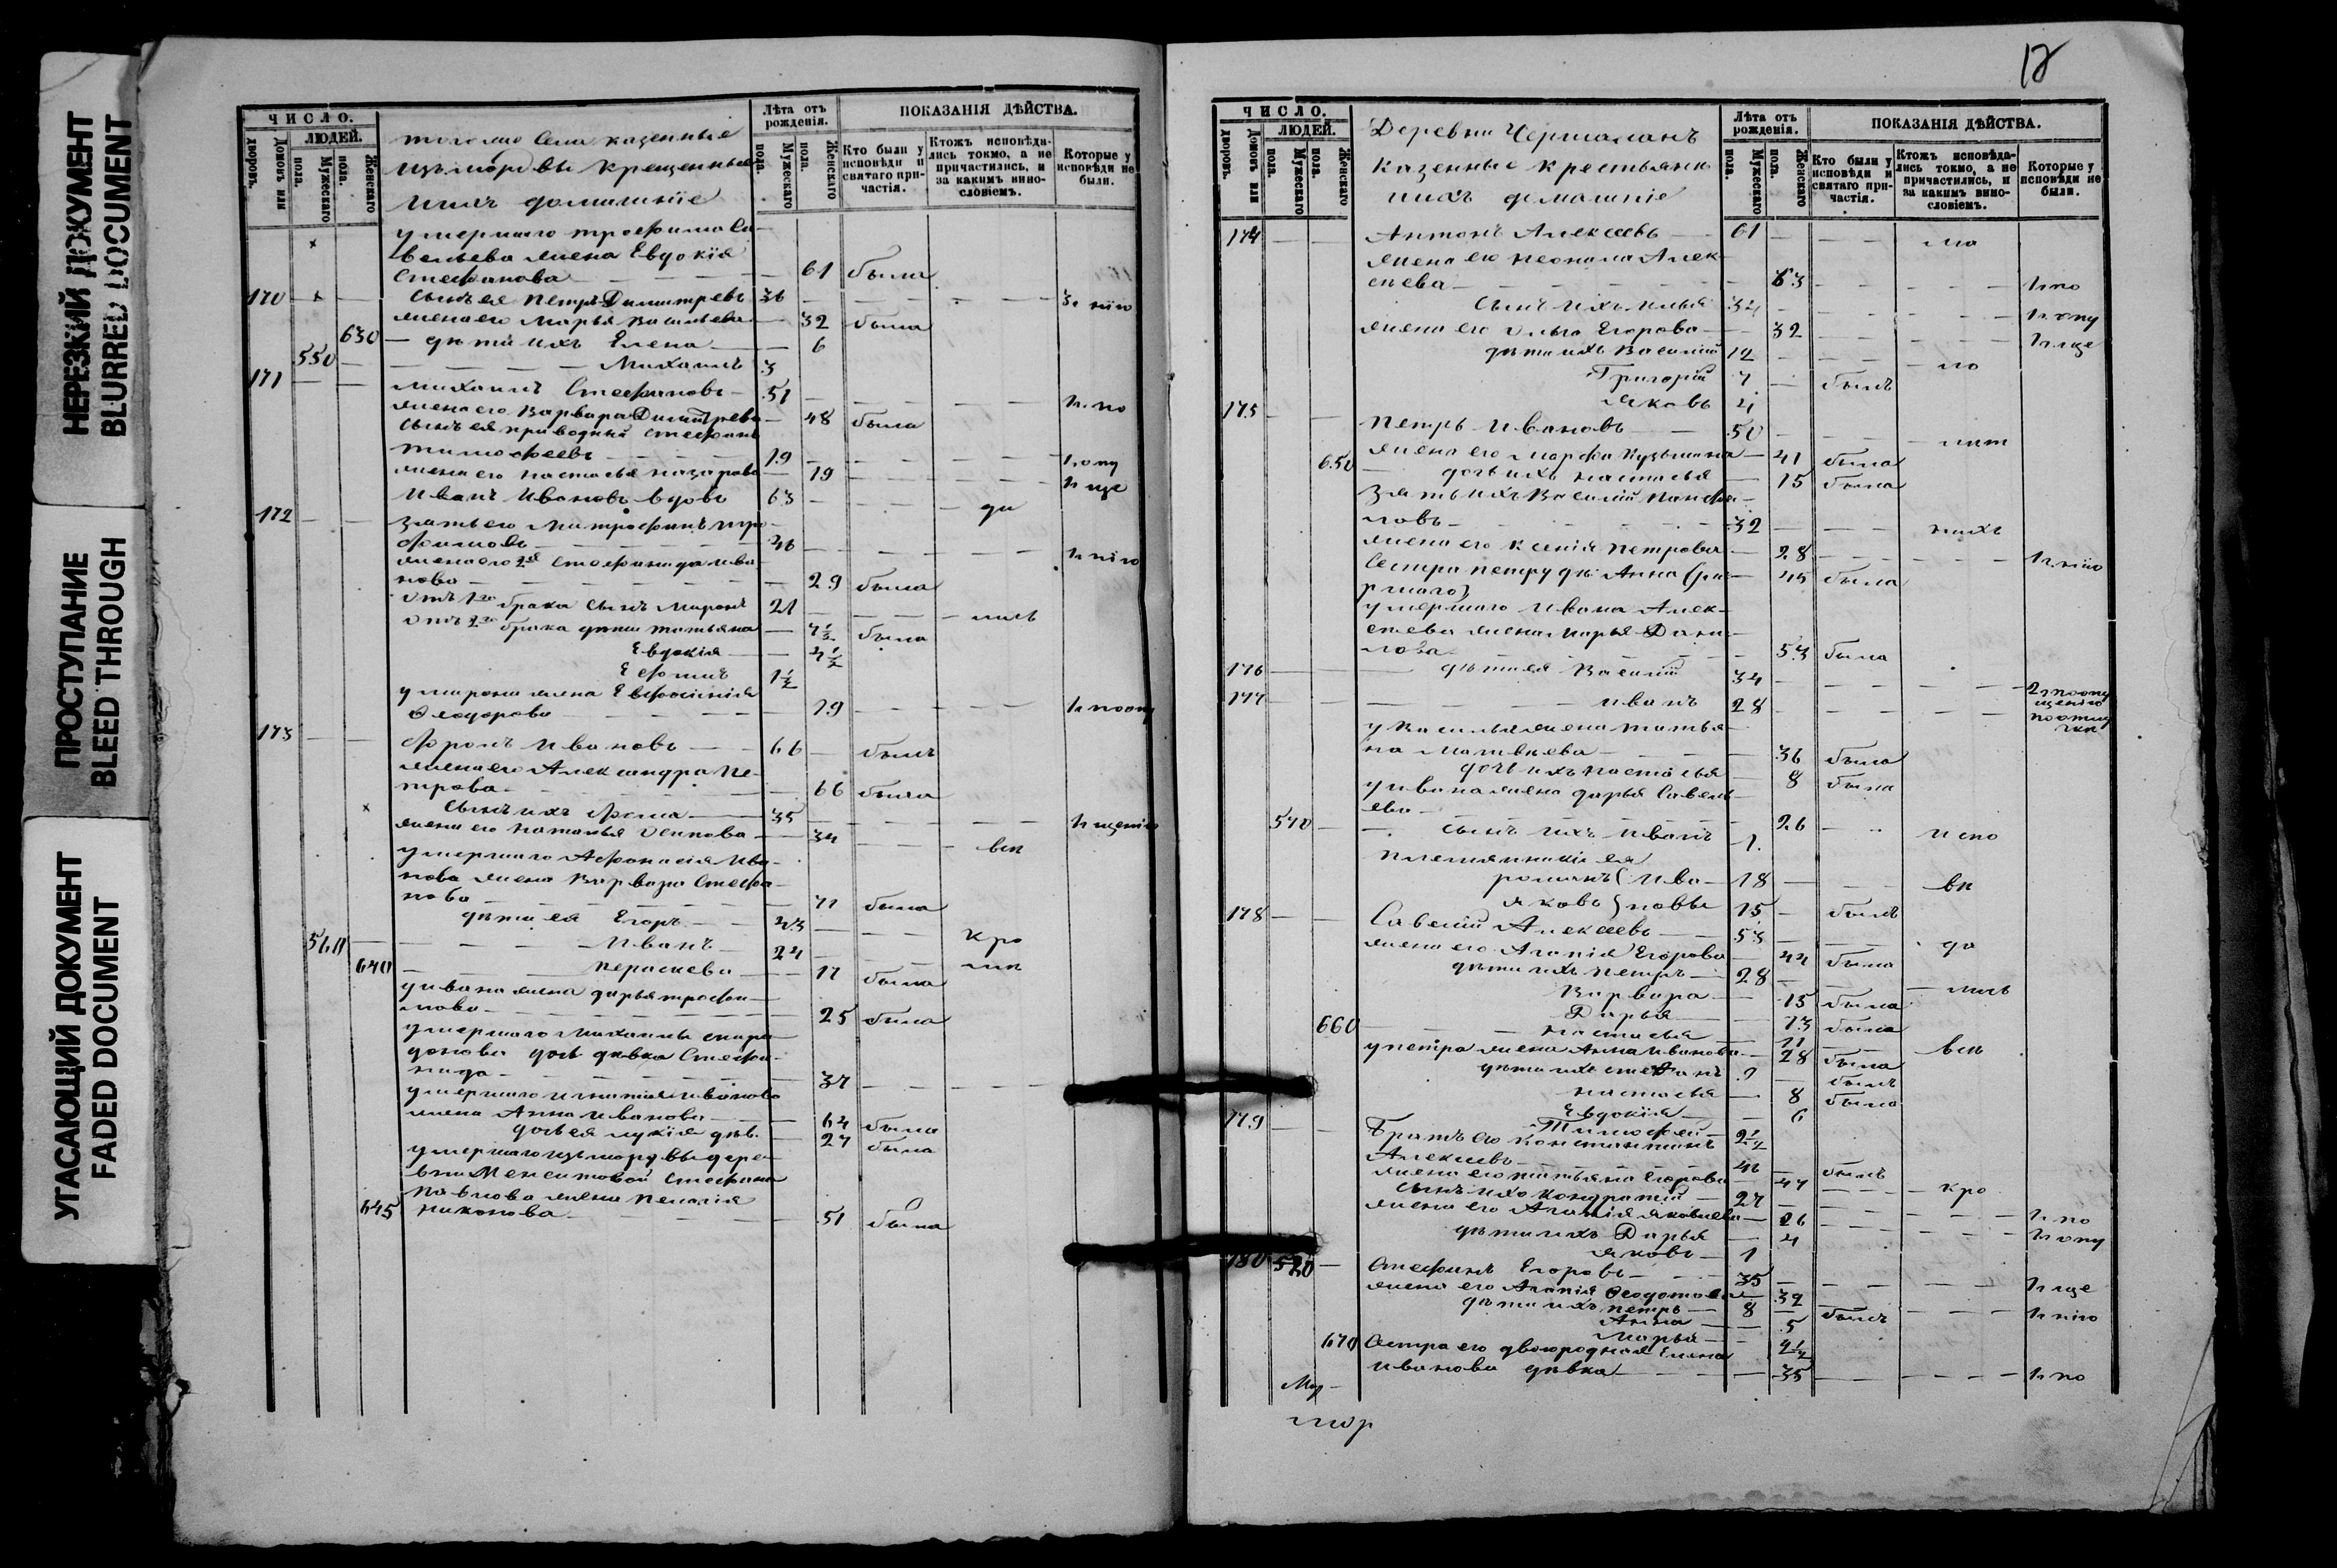 НЕРЕЗКИЙ ДОКУМЕНТ
BLURRED DOCUMENT
ПРОСТУПАНИЕ
BLEED THROUGH
УГАСАЮЩИЙ ДОКУМЕНТ
FADED DOCUMENT
ЧИСЛО.
ЛЮДЕЙ.
Домовъ или дворовъ.
Мужескаго пола.
Женскаго пола.
тогоже Села казенные
изъ мордвы крещенные
ихъ домашніе
Лѣта отъ рожденія.
Мужескаго пола.
Женскаго пола.
ПОКАЗАНІЯ ДѢЙСТВА.
Кто были у исповѣди и святаго причастія.
Ктожъ исповѣдались токмо, а не причастились, и за какимъ винословіемъ.
Которые у исповѣди не были.
умершаго трофима Са-
вельева жена Евдокія
Стефанова 61 была
170 сынъ ея Петръ Димитревъ 36
жена его Марья Васильева 32 была
630 дѣти ихъ Елена 6
550 Михаилъ 3
171 михаилъ Стефановъ 51 по
жена его Варвара Димитрева 48 была
сынъ ея приводный Стефанъ
тимофеевъ 19
жена его настасья назарова 19
172 Иванъ Ивановъ вдовъ 63
зять его Митрофанъ тро-
фимовъ 36
жена его 2я Стефанида ива
нова 29 была
отъ 1го брака сынъ Миронъ 21
отъ 2го брака дѣти татьяна 7½ была
Евдокія 4½
Ефимъ 1½
у мирона жена Евфросинія
Феодорова 19
173 фролъ Ивановъ 66 былъ
жена его Александра Пе-
трова 66 была
сынъ ихъ фома 35
жена его наталья Осипова 34
умершаго Афонасія Ива-
нова жена Варвара Стефа-
нова 71 была
дѣти ея Егоръ 43
560 Иванъ 24
640 Параскева 17 была
у ивана жена дарья трофи-
мова 25 была
умершаго Михаила спири
донова дочь дѣвка Стефа-
нида 37
умершаго игнатія иванова
жена Анна иванова 64 была
дочь ея лукія дѣв. 27 была
умершаго изъ мордвы дере-
вни Менситовой Стефана
Павлова жена Пелагія
645 никонова 51 была
12
ЧИСЛО.
ЛЮДЕЙ.
Домовъ или дворовъ.
Мужескаго пола.
Женскаго пола.
Деревни Чермаланъ
казенные крестьяне
ихъ домашніе
Лѣта отъ рожденія.
Мужескаго пола.
Женскаго пола.
ПОКАЗАНІЯ ДѢЙСТВА.
Кто были у исповѣди и святаго причастія.
Ктожъ исповѣдались токмо, а не причастились, и за какимъ винословіемъ.
Которые у исповѣди не были.
174 Антонъ Алексеевъ 61
жена его неонила Алек-
сеева 63 по
сынъ ихъ илья 34
жена его ольга Егорова 32
дѣти ихъ Василій 12
Григорій 7 былъ
яковъ 4
175 петръ Ивановъ 50
жена его марфа кузьмина 41 была
650 дочь ихъ настасья 15 была
зять ихъ Василій панфи-
ловъ 32
жена его ксенія петрова 28
Сестра петру дѣ Анна 45 была
умершаго Ивана Алек-
сеева жена марья Дани-
лова 53 была
176 дѣти ея Василій 34
177 иванъ 28
у василья жена татья-
на Матвеева 36 была
дочь ихъ настасья 8 была
у ивана жена дарья Савель-
ева 26
570 сынъ ихъ иванъ 1
племянники ея
романъ Ива- 18
яковъ новы 15 былъ
178 Савелій Алексеевъ 53
жена его Агапія Егорова 44 была
дѣти ихъ петръ 28
Варвара 15 была
Дарья 13 была
660 настасья 11
у петра жена Анна иванова 28 была
дѣти ихъ стефанъ 9 былъ
настасья 8 была
Евдокія 6
Тимофей 2½
179 Братъ его константинъ
Алексеевъ 46 былъ
жена его татьяна Егорова 47
сынъ ихъ кондратій 27
жена его Агапія яковлева 26
дѣти ихъ Дарья 4
яковъ 1
180 580 Стефанъ Егоровъ 35
жена его Агапія Феодотова 32
дѣти ихъ петръ 8 былъ
Анна 5
Марья 2½
670 Сестра его двоюродная Елена
иванова дѣвка 35 по